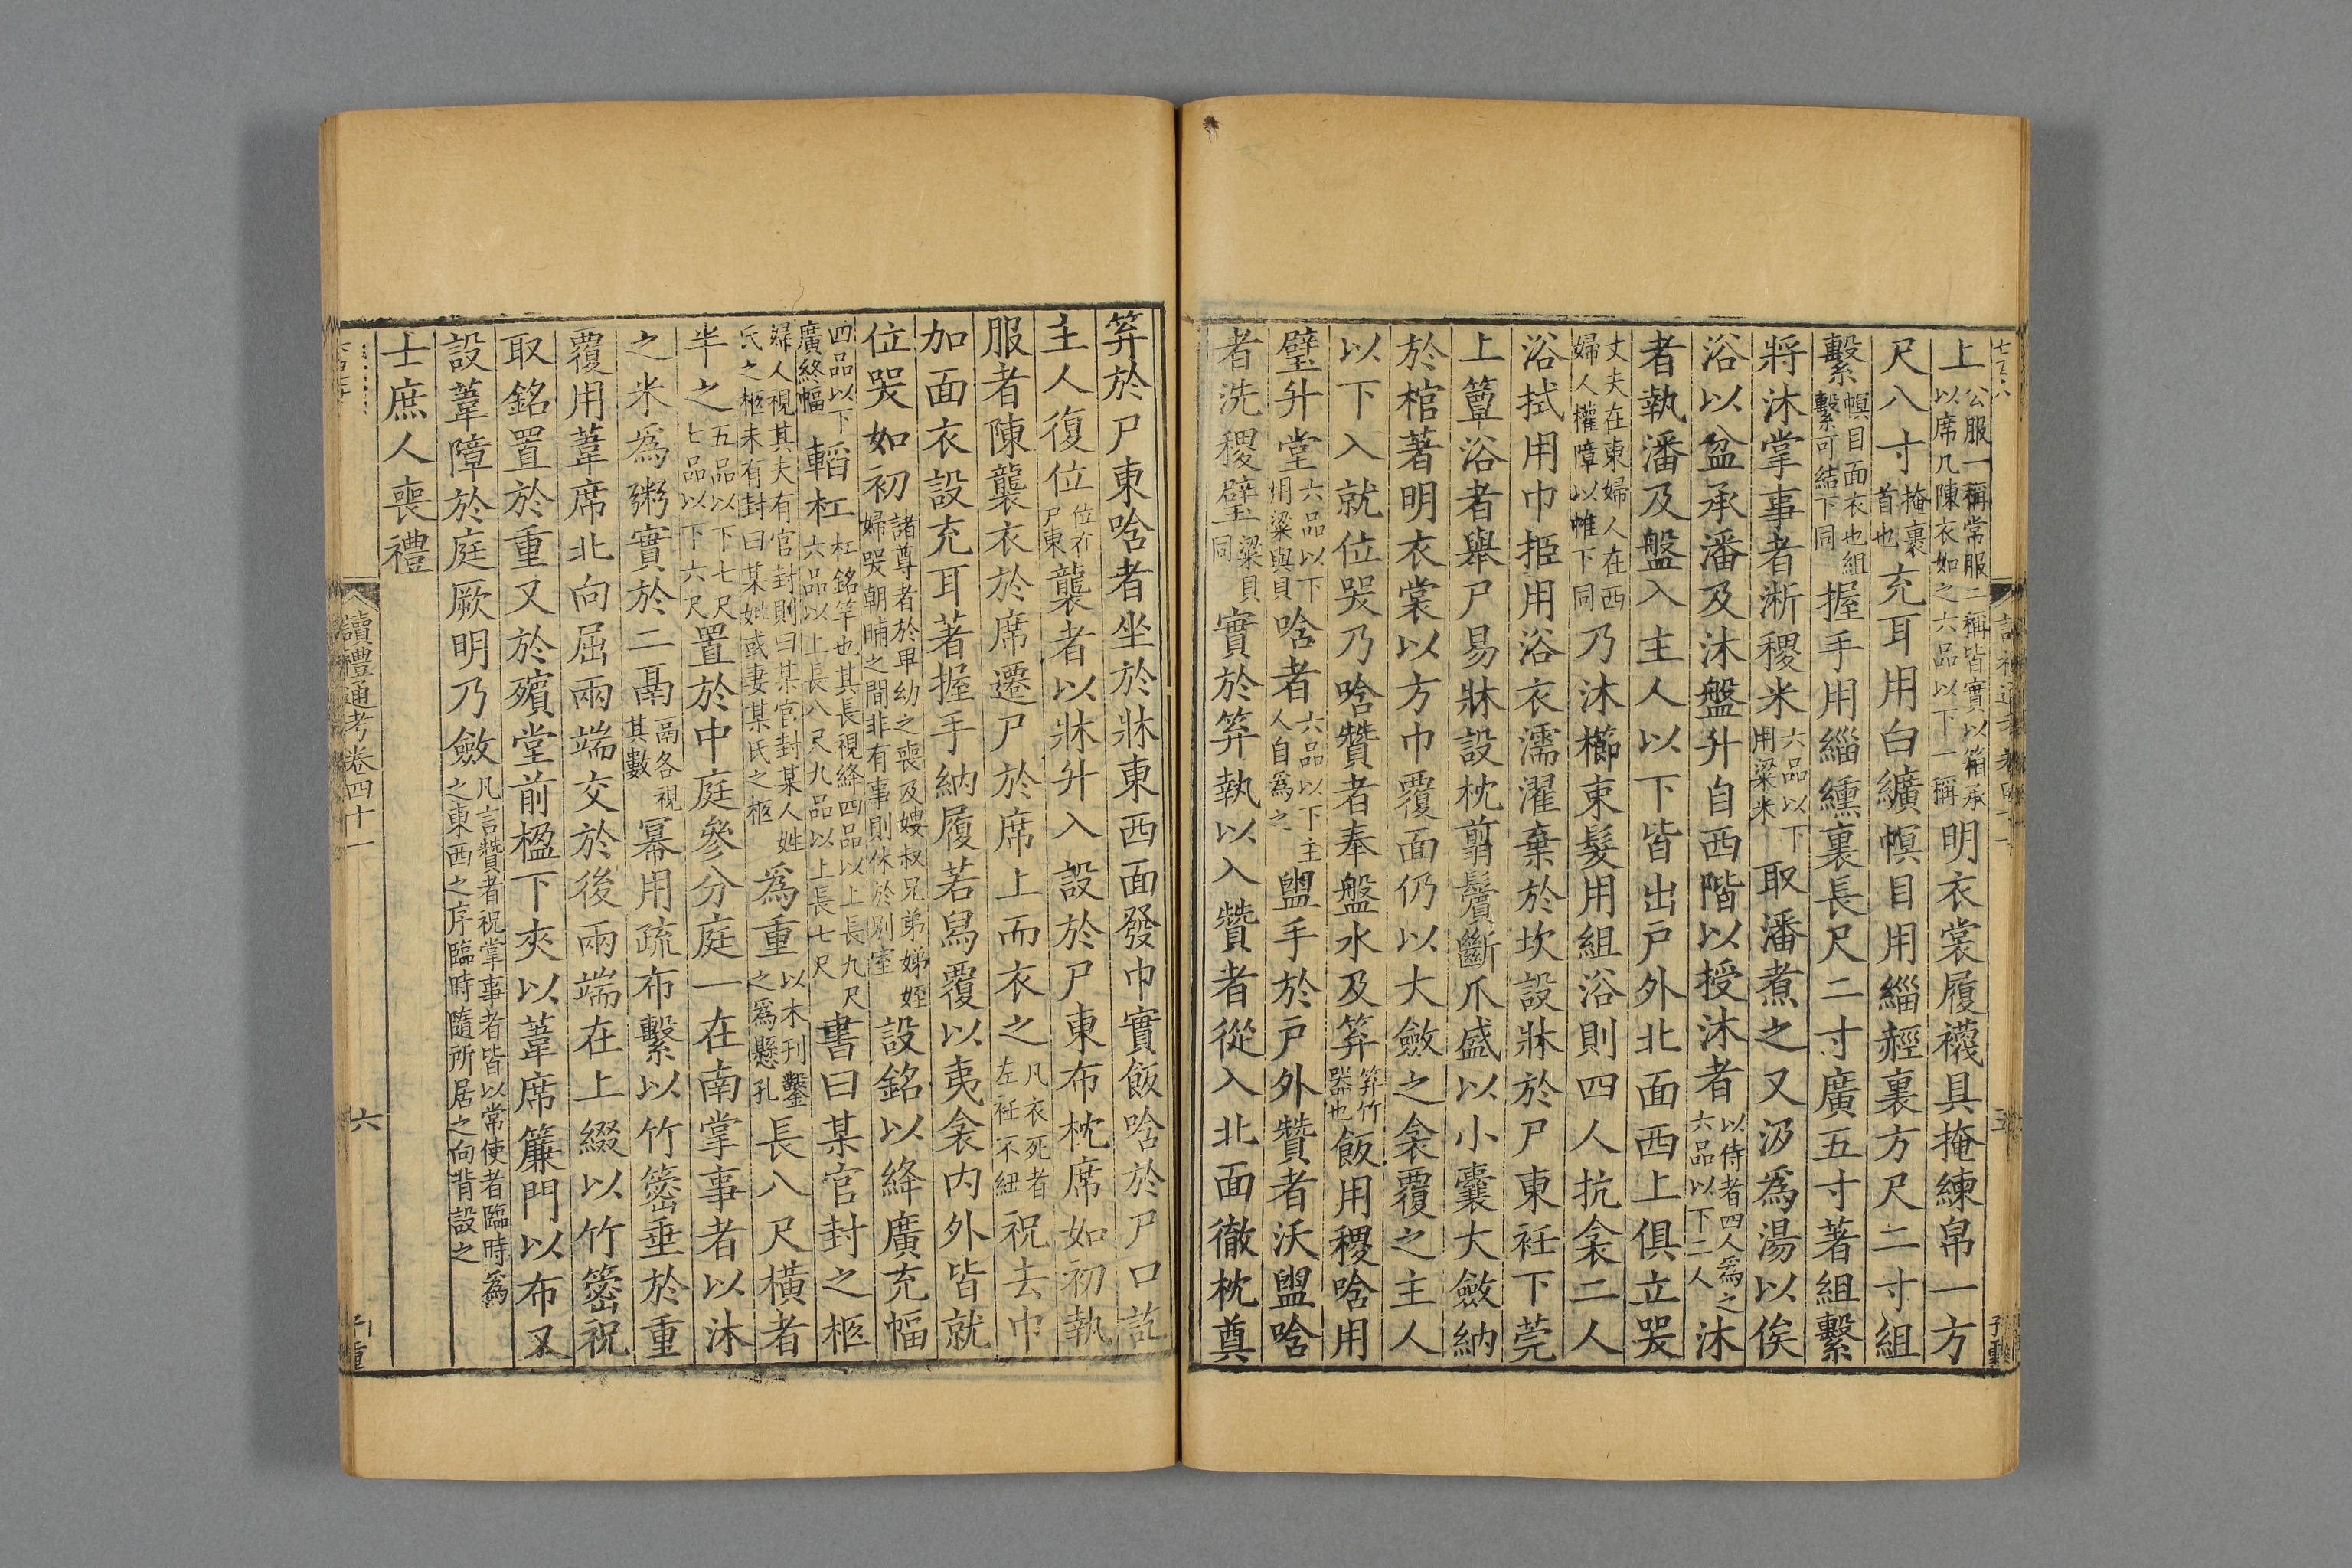 上公服一稱常服二稱皆實以箱承以席几陳衣如之六品以下一稱明衣裳履襪具掩練帛一方
尺八寸掩裹首也充耳用白纊幎目用緇赬裏方尺二寸組
繫幎目面衣也組繫可結下同握手用緇纁裏長尺二寸廣五寸著組繫
將沐掌事者淅稷米六品以下用粱米取潘煮之又汲爲湯以俟
浴以盆承潘及沐盤升自西階以授沐者以侍者四人爲之六品以下二人沐
者執潘及盤入主人以下皆出戶外北面西上俱立哭
丈夫在東婦人在西婦人權障以帷下同乃沐櫛束髮用組浴則四人抗衾二人
浴拭用巾挋用浴衣濡濯棄於坎設牀於尸東衽下莞
上簟浴者舉尸易牀設枕翦鬢斷爪盛以小囊大斂納
於棺著明衣裳以方巾覆面仍以大斂之衾覆之主人
以下入就位哭乃唅贊者奉盤水及笲笲竹器也飯用稷唅用
璧升堂六品以下用粱與貝唅者六品以下主人自爲之盥手於戶外贊者沃盥唅
者洗稷璧粱貝同實於笲執以入贊者從入北面徹枕奠
笲於尸東唅者坐於牀東西面發巾實飯唅於尸口訖
主人復位位在尸東襲者以牀升入設於尸東布枕席如初執
服者陳襲衣於席遷尸於席上而衣之凡衣死者左衽不紐祝去巾
加面衣設充耳著握手納履若舄覆以夷衾內外皆就
位哭如初諸尊者於卑幼之喪及嫂叔兄弟娣姪婦哭朝晡之間非有事則休於別室設銘以絳廣充幅
四品以下廣終幅韜杠杠銘竿也其長視絳四品以上長九尺六品以上長八尺九品以上長七尺書曰某官封之柩
婦人視其夫有官封則曰某官封某人姓氏之柩未有封曰某妣或妻某氏之柩爲重以木刊鑿之爲懸孔長八尺橫者
半之五品以下七尺七品以下六尺置於中庭參分庭一在南掌事者以沐
之米爲粥實於二鬲鬲各視其數冪用疏布繫以竹䉲垂於重
覆用葦席北向屈兩端交於後兩端在上綴以竹䉲祝
取銘置於重又於殯堂前楹下夾以葦席簾門以布又
設葦障於庭厥明乃斂凡言贊者祝掌事者皆以常使者臨時爲之東西之序臨時隨所居之向背設之
士庶人喪禮
讀禮通考卷四十一
六